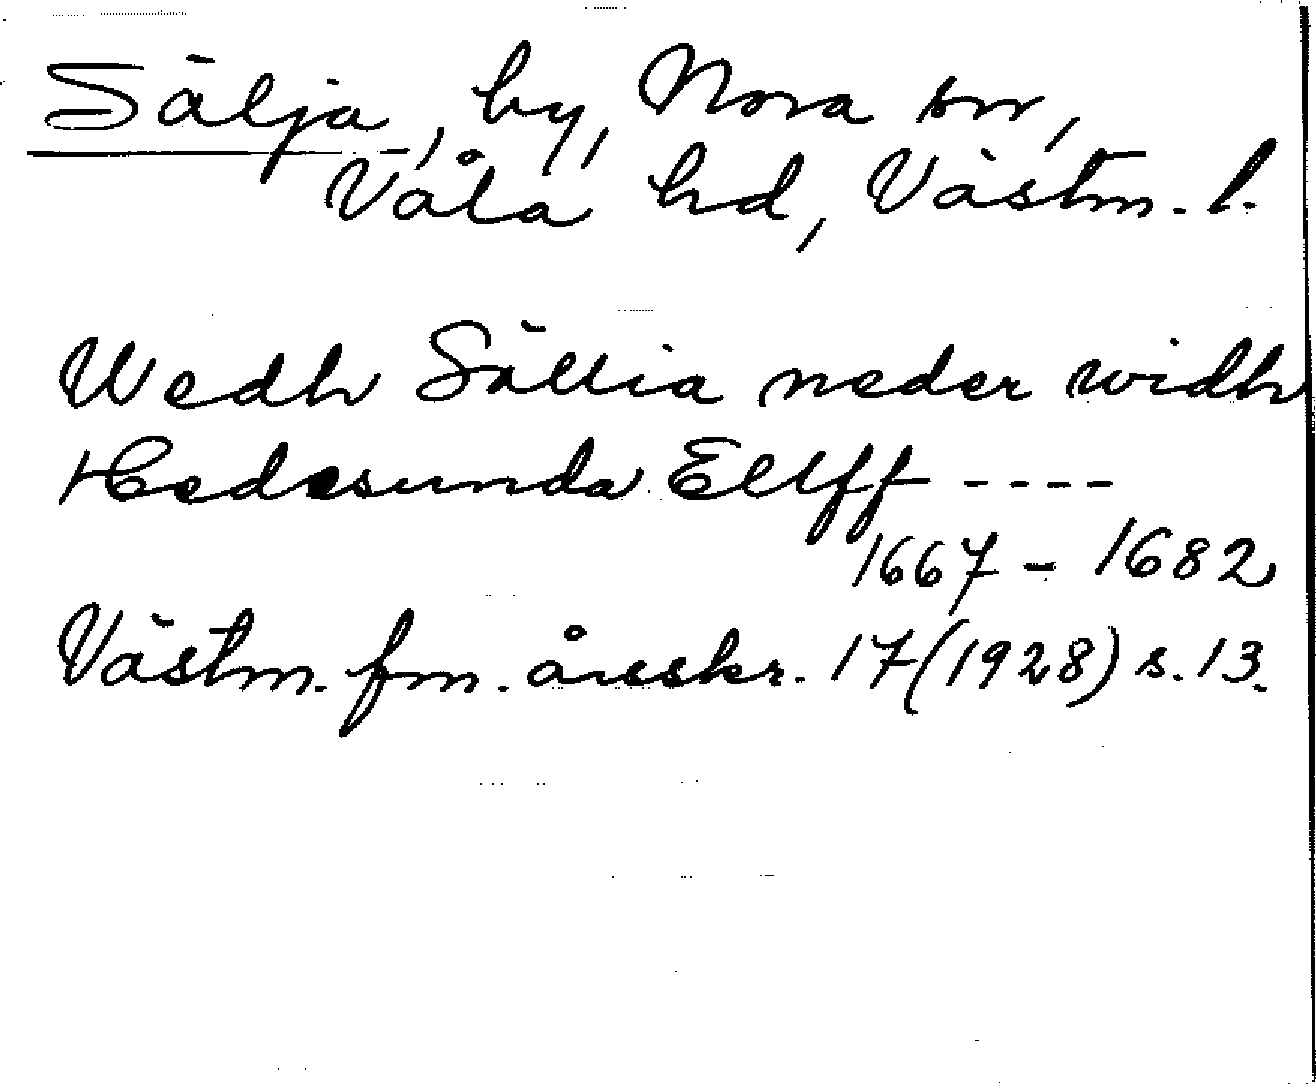 Sälja, by, Nora sn,
Våla hd, Västm. l.
Wedh Sällia neder widh
Hedesunda Ellff ----
1667 - 1682
Västm. fm. årsskr. 17 (1928) s. 13.